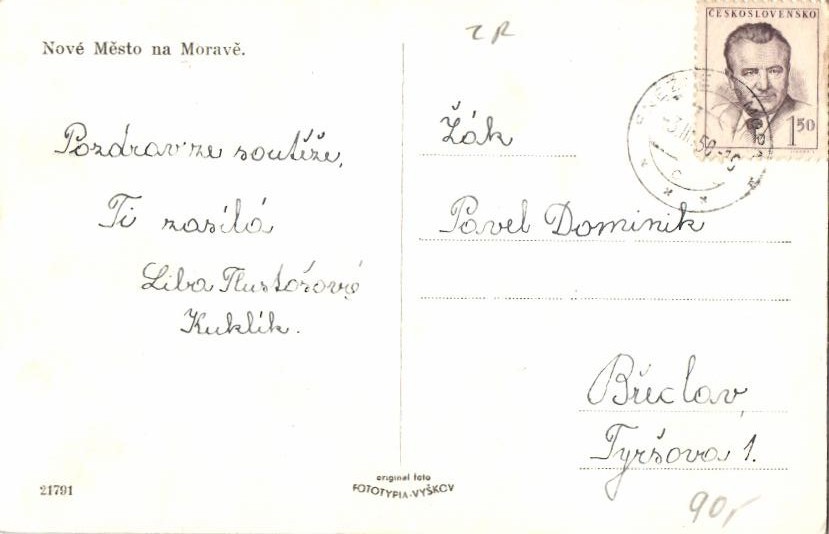 Nové Město na Moravě.
Pozdrav ze soutěže,
Ti zasílá
Liba
Kuklík.
21791
original foto
FOTOTYPIA-VYŠKOV
ČESKOSLOVENSKO
1 50
Žák
Pavel Dominik
Břeclav,
Tyršova 1.
90,-